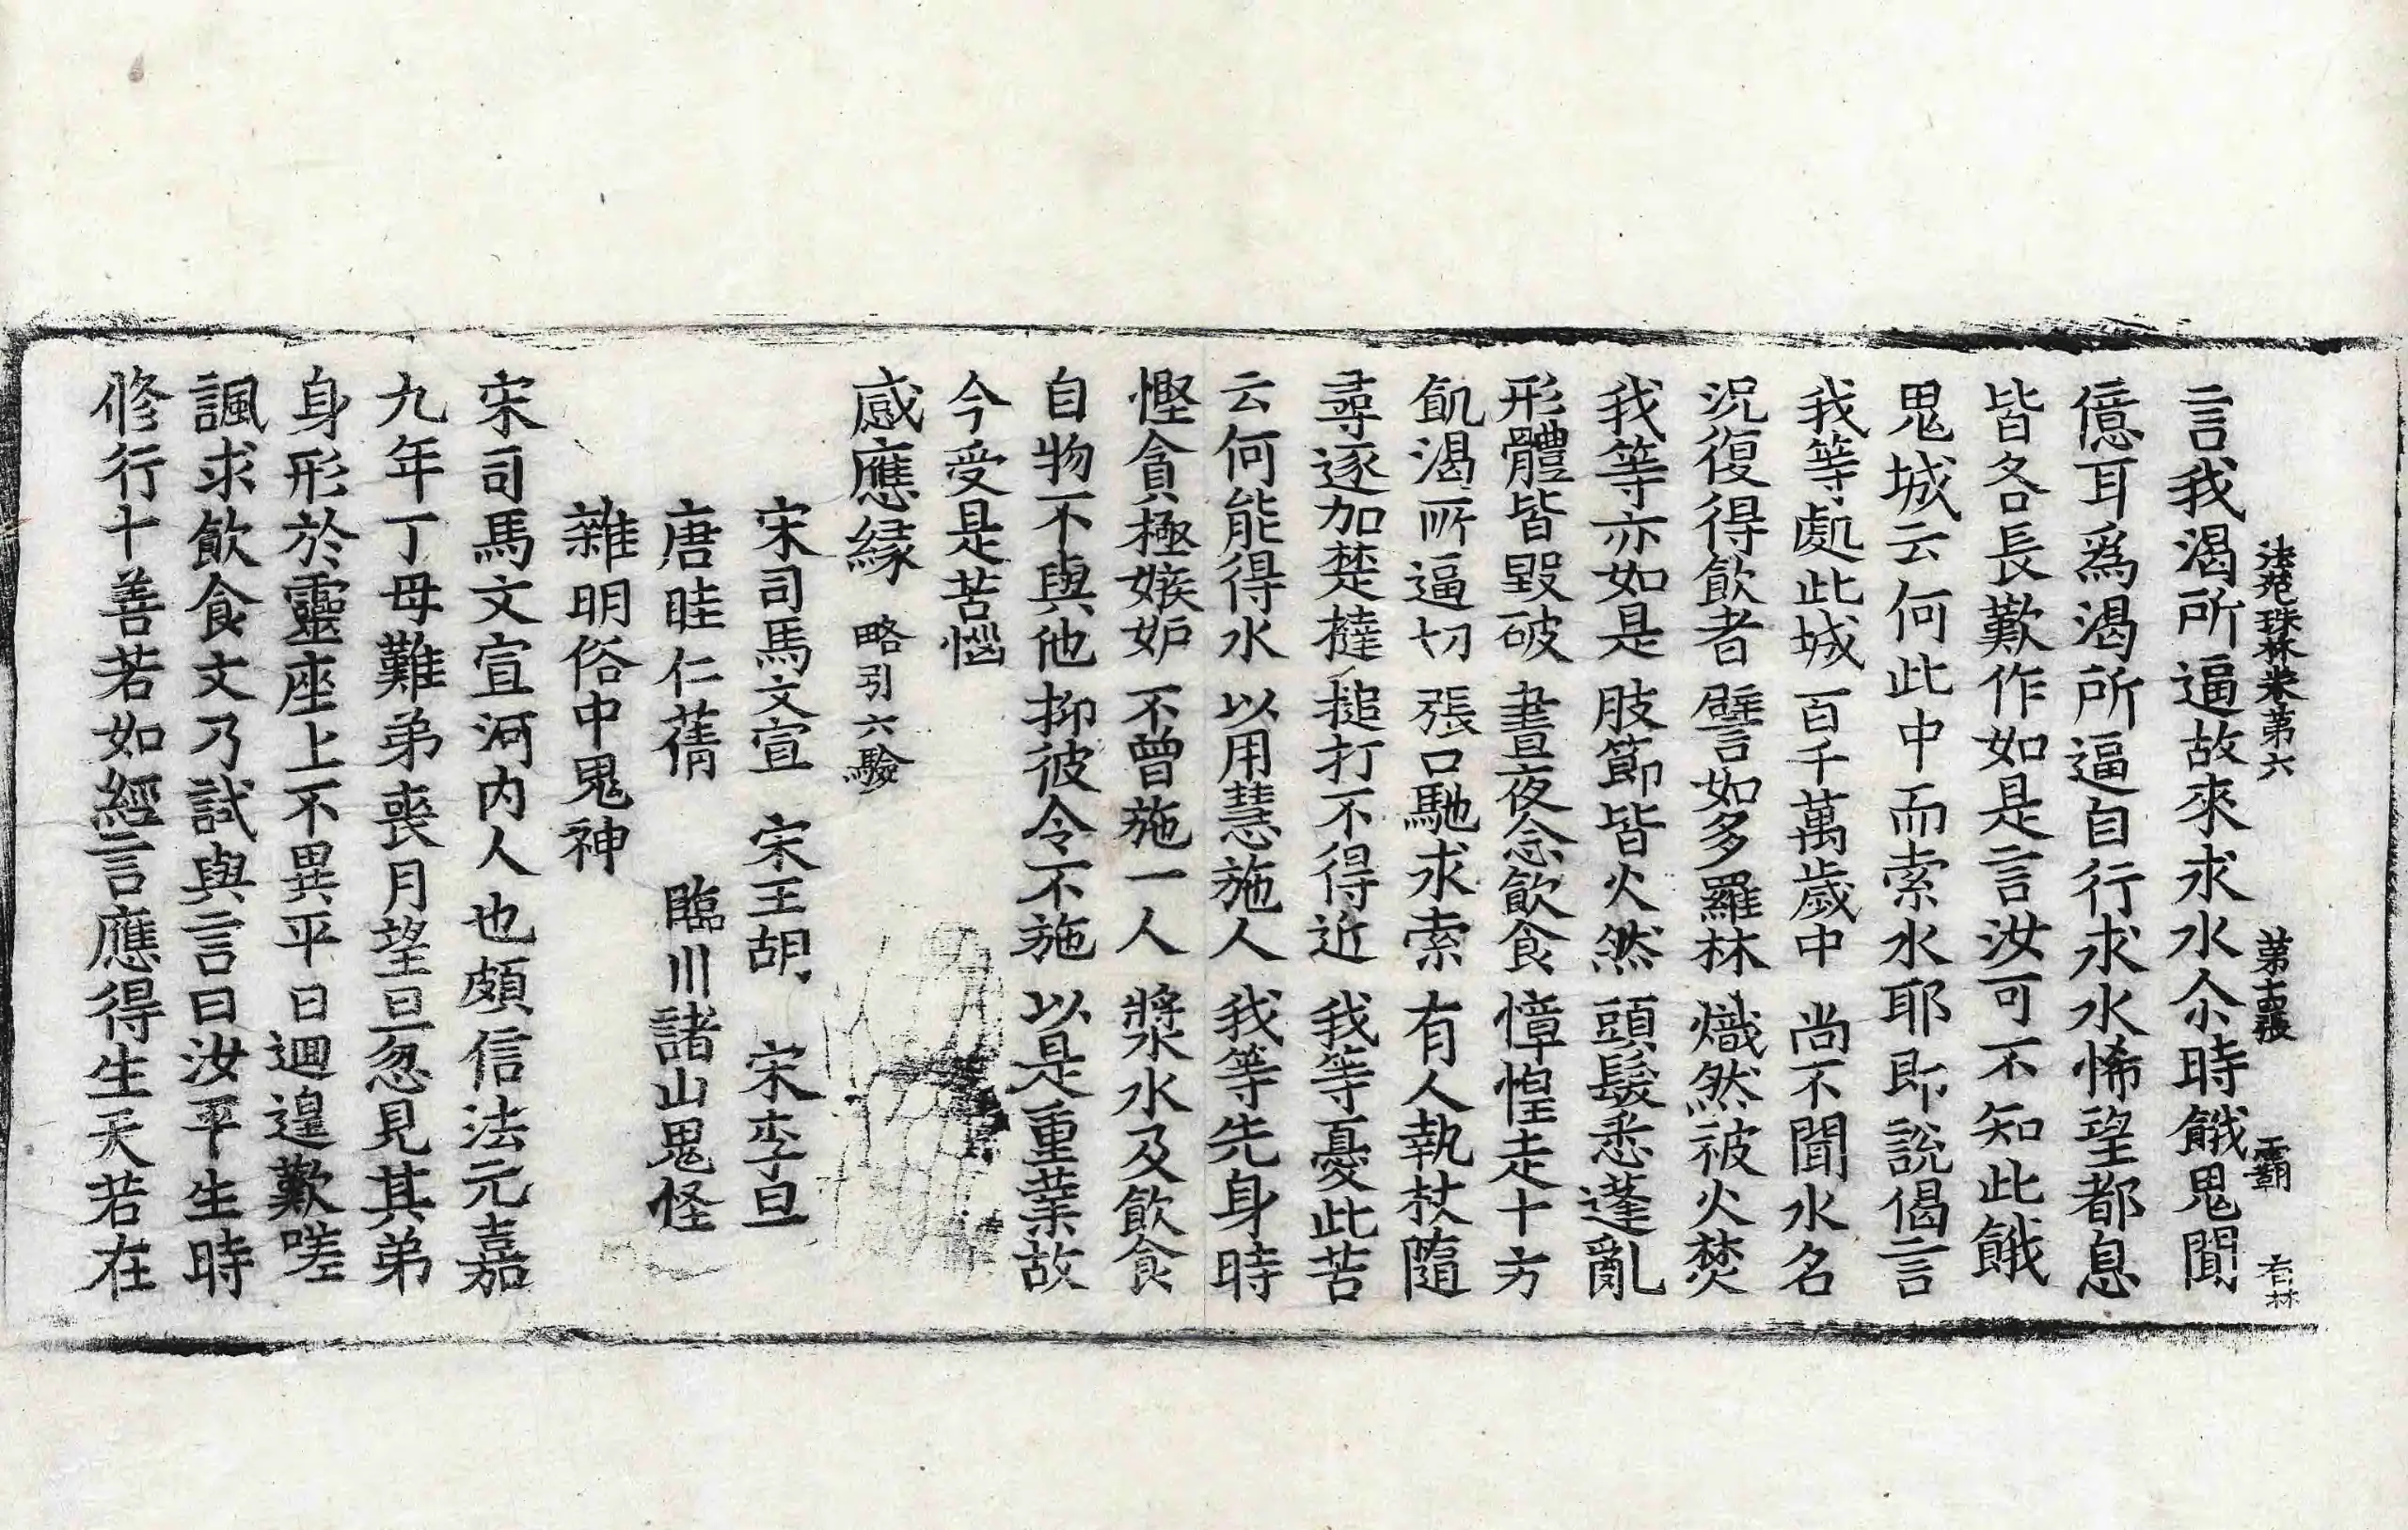 法苑珠林卷第六 第十五張 霸 有林
言我渴所逼故來求水尒時餓鬼聞
億耳爲渴所逼自行求水悕望都息
皆各長歎作如是言汝可不知此餓
鬼城云何此中而索水耶即說偈言
我等處此城 百千萬歲中 尚不聞水名
況復得飲者 譬如多羅林 熾然被火焚
我等亦如是 肢節皆火然 頭髮悉蓬亂
形體皆毀破 晝夜念飲食 慞惶走十方
飢渴所逼切 張口馳求索 有人執杖隨
尋逐加楚撻 搥打不得近 我等憂此苦
云何能得水 以用慧施人 我等先身時
慳貪極嫉妒 不曾施一人 漿水及飲食
自物不與他 抑彼令不施 以是重業故
今受是苦惱
感應緣 略引六驗
宋司馬文宣 宋王胡 宋李旦
唐眭仁蒨 臨川諸山鬼怪
雜明俗中鬼神
宋司馬文宣河内人也頗信法元嘉
九年丁母難弟喪月望旦忽見其弟
身形於靈座上不異平日迴遑歎嗟
諷求飲食文乃試與言曰汝平生時
修行十善若如經言應得生天若在